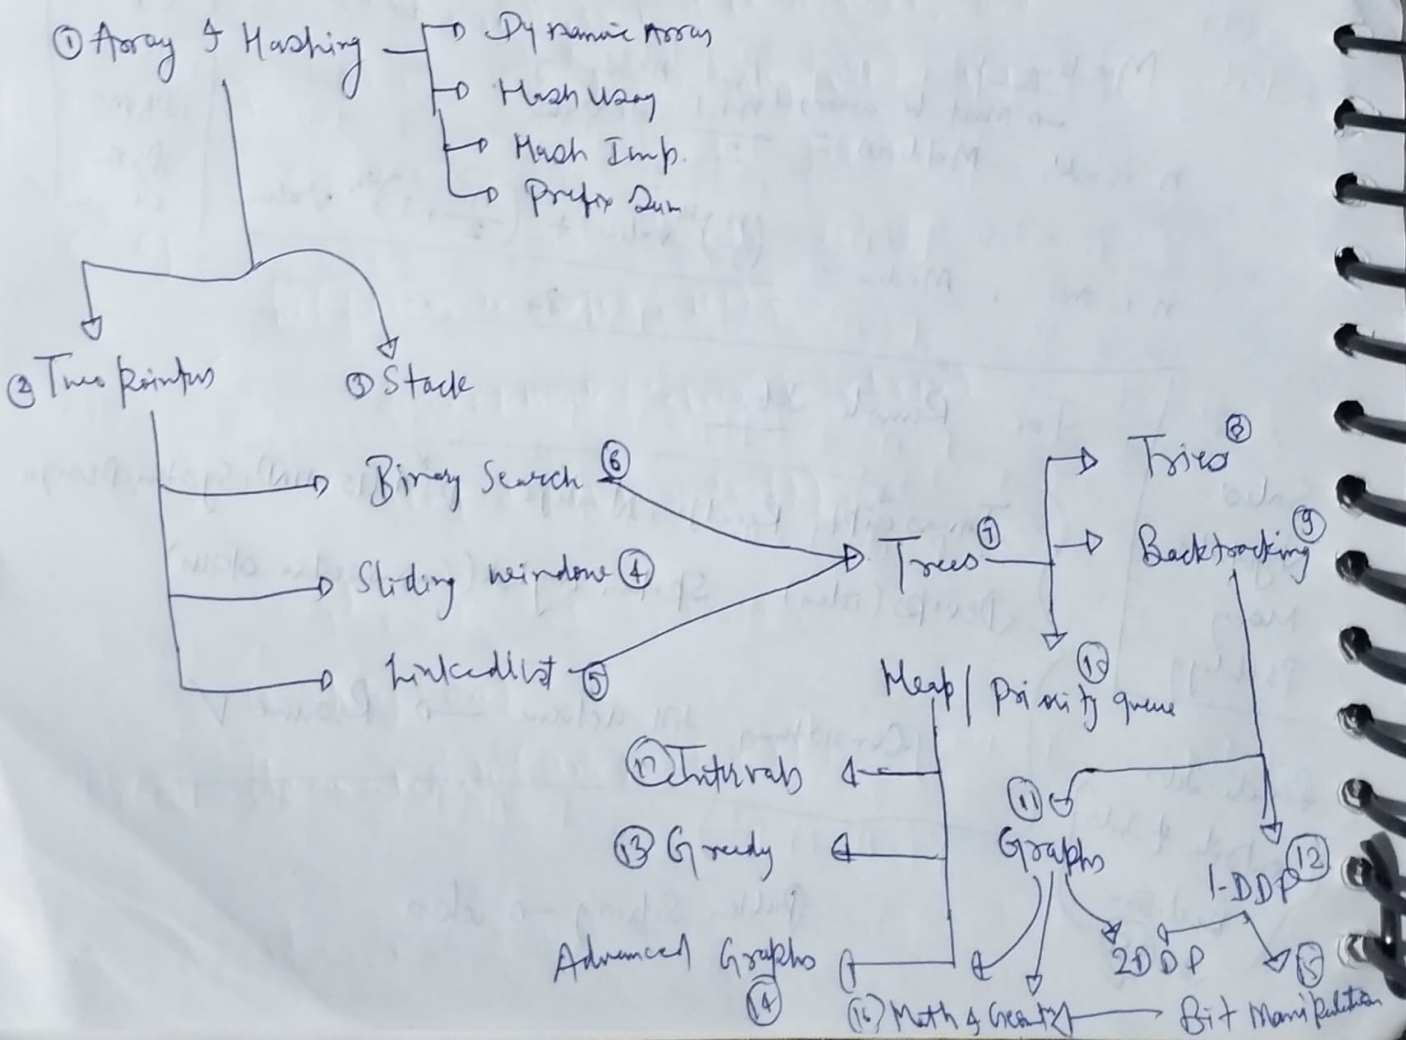 ① Array & Hashing
Dynamic Array
Hash Usag
Hash Imp.
Prefix Sum
② Two Pointers
③ Stack
Binary Search ⑥
Sliding window ④
Linkedlist ⑤
Trees ⑦
Tries ⑧
Backtracking ⑨
Heap / Priority queue ⑩
⑰ Intervals
⑬ Greedy
Advanced Graphs
⑭
⑪
Graphs
1-DDP ⑫
2DDP
⑮
⑯ Math & Geomtry
Bit Manipulation